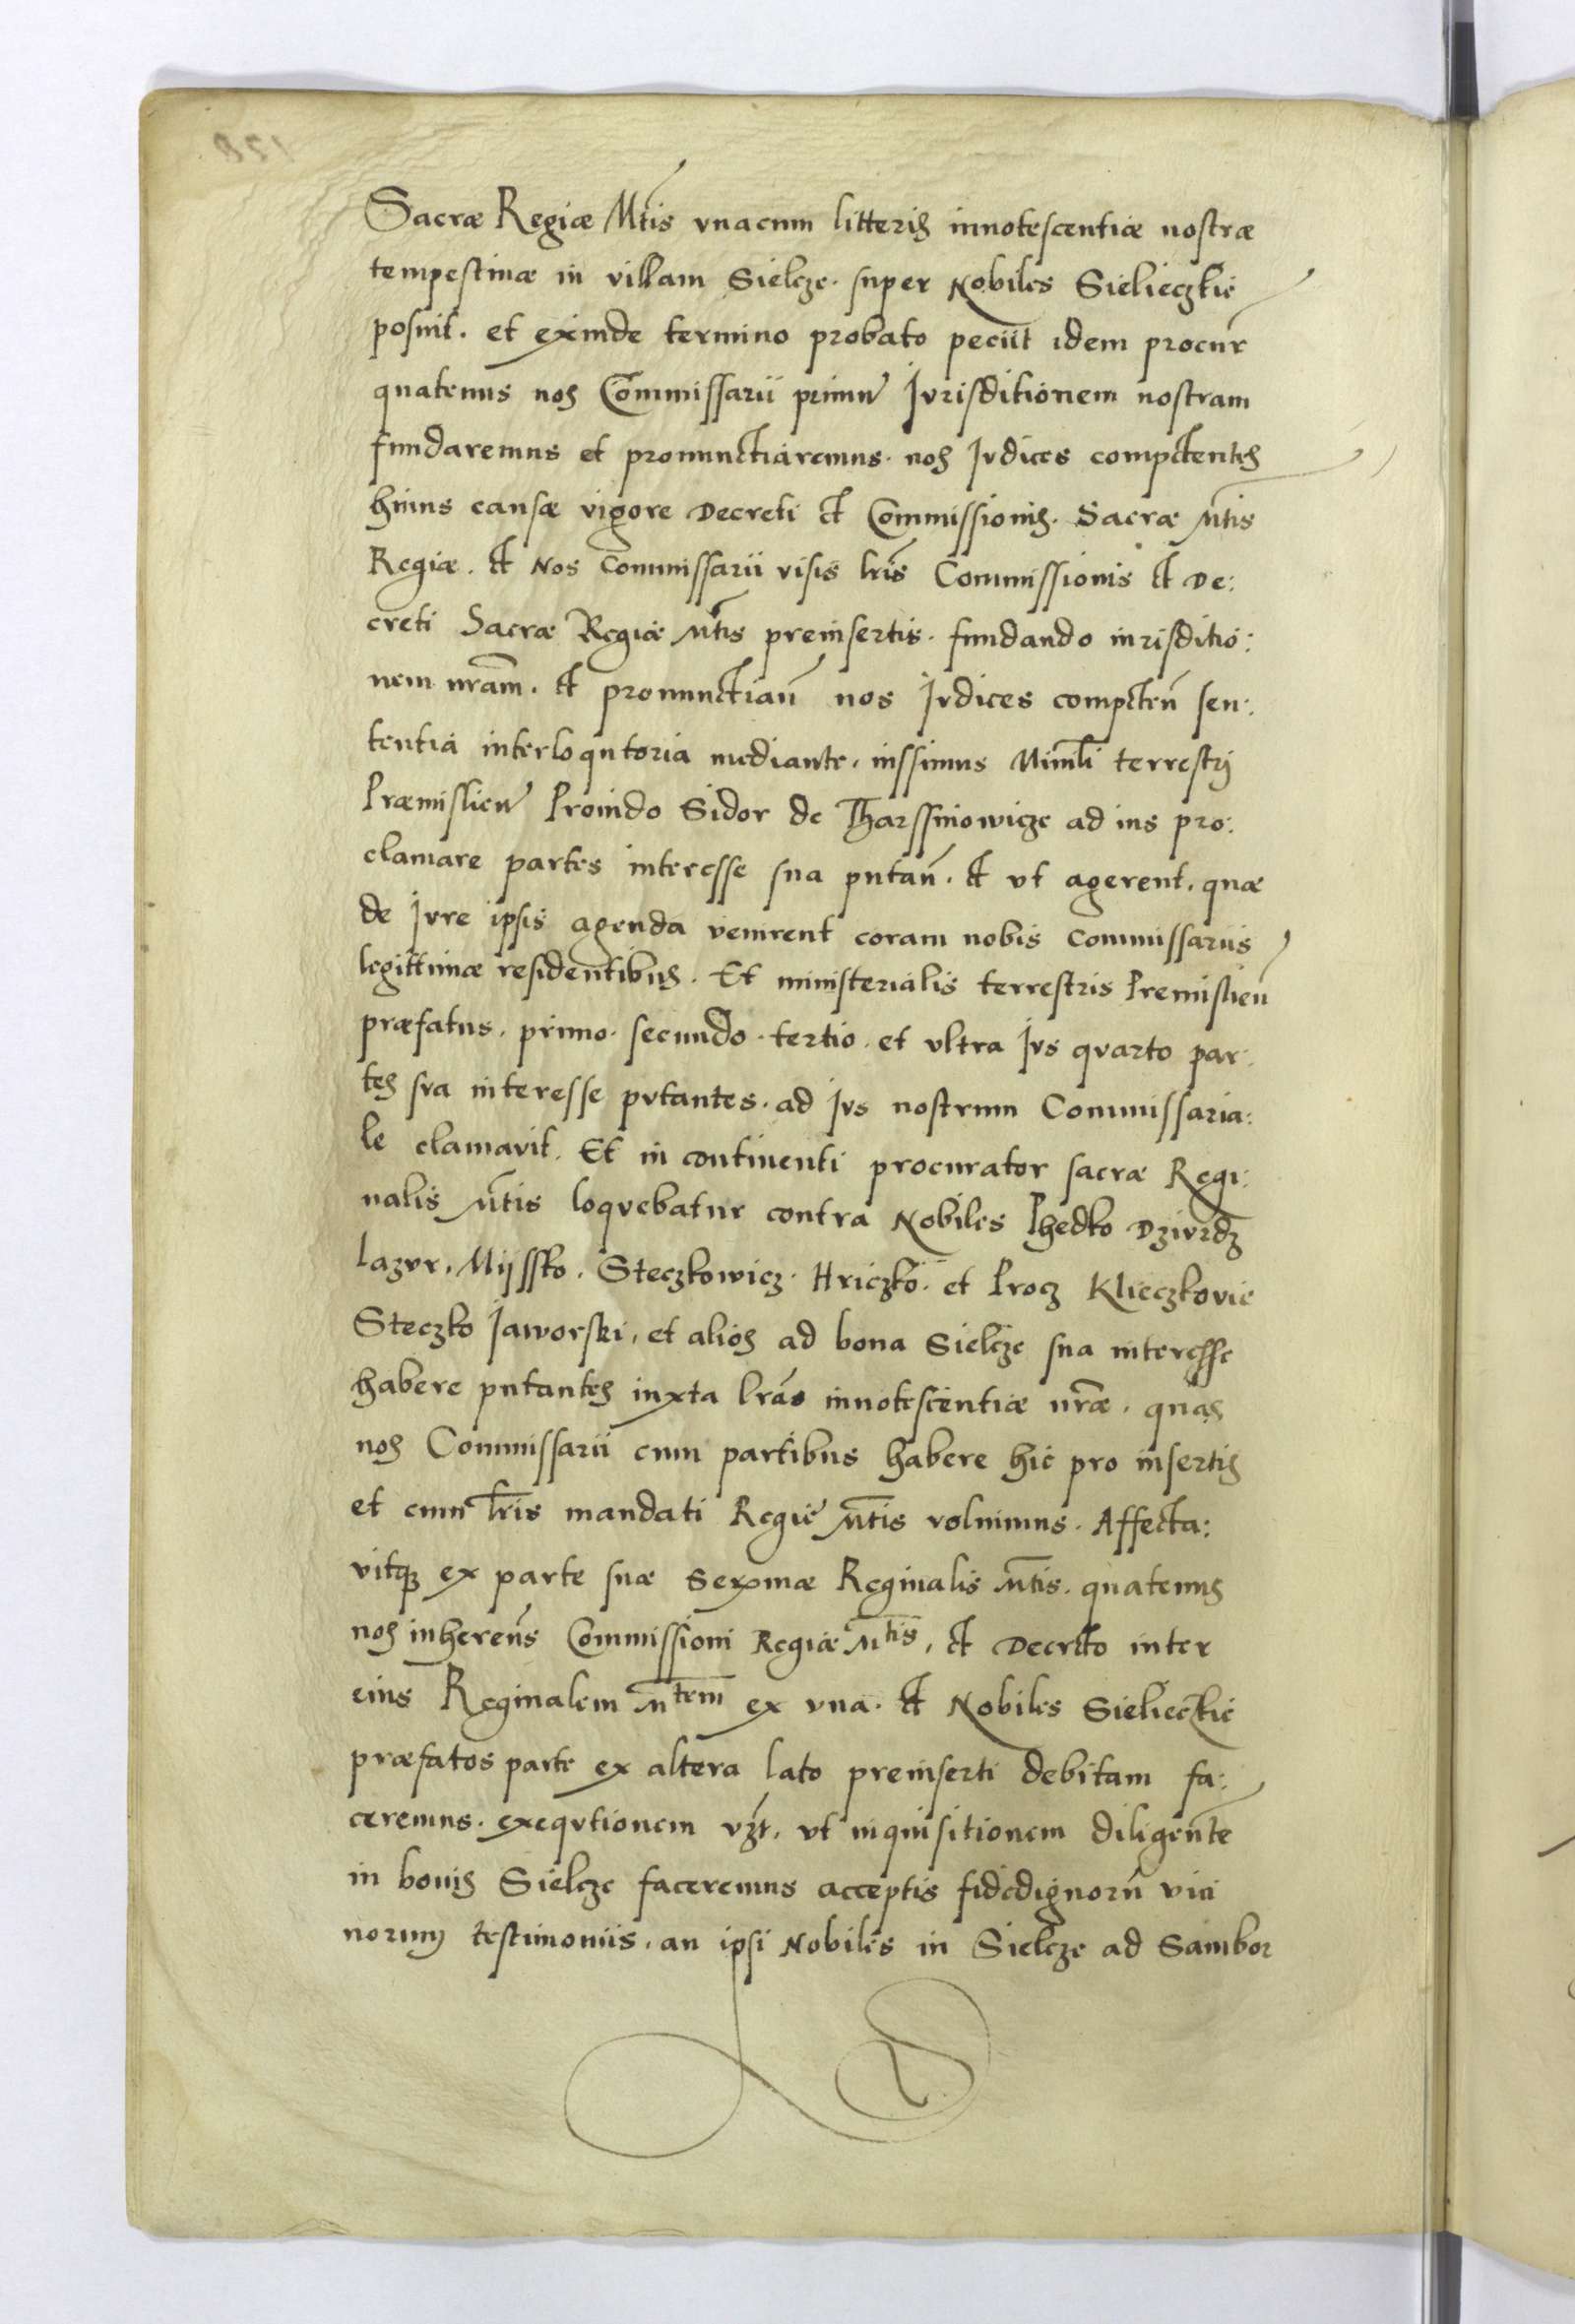 Sacræ Regiæ Mtis vnacum litteris innotescentiæ nostræ
tempestiuæ in villam Sielcze. super Nobiles Sielieczkie
posuit. et exinde termino probato peciit idem procur
quatenus nos Commissarii primu Jvrisditionem nostram
fundaremus et pronunctiaremus. nos Jvdices competentes
huius causæ vigore Decreti et Commissionis. Sacræ Mtis
Regiæ. et Nos Commissarii visis lris Commissionis et De:
creti Sacræ Regiæ Mtis preinsertis. fundando iurisditio:
nem nram. et pronunctiau nos Jvdices competen sen:
tentia interloqutoria mediante. iussimus Minrli terrestrj
Præmislien Proindo Sidor de Tharssnowicze ad ius pro:
clamare partes interesse sua putan. et vt agerent. quæ
de Jvre ipsis agenda venirent coram nobis Commissariis
legittimæ residentibus. Et ministerialis terrestris Premislien
præfatus. primo. secundo. tertio. et vltra Jvs qvarto par:
tes sva interesse pvtantes. ad Jvs nostrum Commissaria:
le clamavit. Et in continenti procurator sacræ Regi:
nalis Mtis loqvebatur contra Nobiles Phedko Dzivrdz
Lazvr. Mijssko. Steczkowicz. Hriczko. et Procz Klieczkovic
Steczko Jaworski, et alios ad bona Sielcze sua interesse
habere putantes iuxta lras innotescentiæ nræ. quas
nos Commissarii cum partibus habere hic pro insertis
et cum lris mandati Regiæ Mtis voluimus. Affecta:
vitq ex parte suæ Serxmæ Reginalis Mtis. quatenus
nos inherens Commissioni Regiæ Mtis, et Decreto inter
eius Reginalem Mtem ex vna. et Nobiles Sielieczkie
præfatos parte ex altera lato preinserti debitam fa:
ceremus. exeqvtionem vzt. vt inquisitionem diligente
in bonis Sielcze faceremus acceptis fidedignoru vici
norum testimoniis. an ipsi Nobiles in Sielcze ad Sambor